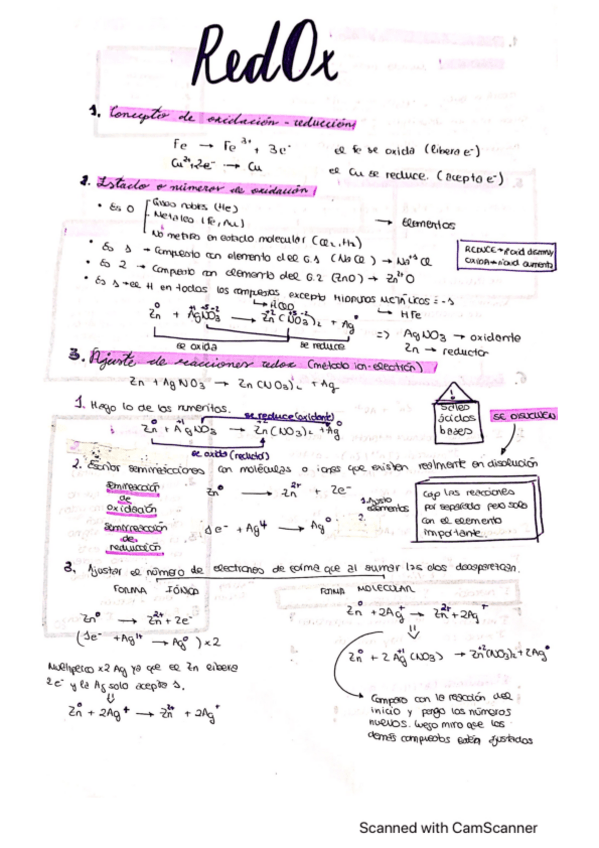 RedOx
1. Concepto de oxidación - reducción
Fe → Fe³⁺ + 3e⁻ el Fe se oxida (libera e⁻)
Cu²⁺+2e⁻ → Cu el Cu se reduce. (acepta e⁻)
2. Estado o números de oxidación
• Es 0 Gases nobles (He)
Metales (Fe, Au) → Elementos
No metales en estado molecular (Cl₂, H₂)
• Es 1 → Compuesto con elemento del G.1 (NaCl) → Na⁺¹Cl
REDUCE → nºoxid disminuy
OXIDA → nºoxid aumenta
• Es 2 → Compuesto con elemento del G.2 (ZnO) → Zn²⁺O
• Es 1 → el H en todos los compuestos excepto HIDRUROS METÁLICOS = -1
→ HFe
Zn⁰ + Ag⁺¹N⁺⁵O₃⁻² → Zn⁺²(N⁺⁵O₃⁻²)₂ + Ag⁰
⇒ AgNO₃ → oxidante
Zn → reductor
se oxida se reduce
3. Ajuste de reacciones redox (método ion-electrón)
Zn + AgNO₃ → Zn(NO₃)₂ + Ag
1. Hago lo de los numeritos.
se reduce (oxidante)
Zn⁰ + Ag⁺¹NO₃ → Zn⁺²(NO₃)₂ + Ag⁰
se oxida (reductor)
!
Sales
ácidos
bases
SE DISUELVEN
2. Escribir semirreacciones con moléculas o iones que existen realmente en disolución
semirreacción de oxidación
Zn⁰ → Zn²⁺ + 2e⁻
1. Ajusto elementos
2.
semirreacción de reducción
1e⁻ + Ag⁺¹ → Ag⁰
Cojo las reacciones
por separado pero solo
con el elemento
importante.
3. Ajustar el número de electrones de forma que al sumar las dos desaparezcan.
FORMA IÓNICA
FORMA MOLECULAR
Zn⁰ → Zn²⁺ + 2e⁻
(1e⁻ + Ag¹⁺ → Ag⁰) x2
Multiplico x2 Ag ya que el Zn libera
2e⁻ y la Ag solo acepta 1.
⇓
Zn⁰ + 2Ag⁺ → Zn²⁺ + 2Ag⁺
Zn⁰ + 2Ag⁺ → Zn²⁺ + 2Ag⁺
⇓
Zn⁰ + 2Ag⁺¹(NO₃) → Zn⁺²(NO₃)₂ + 2Ag⁰
Comparo con la reacción del
inicio y pongo los números
nuevos. Luego miro que los
demás compuestos estén ajustados
Scanned with CamScanner